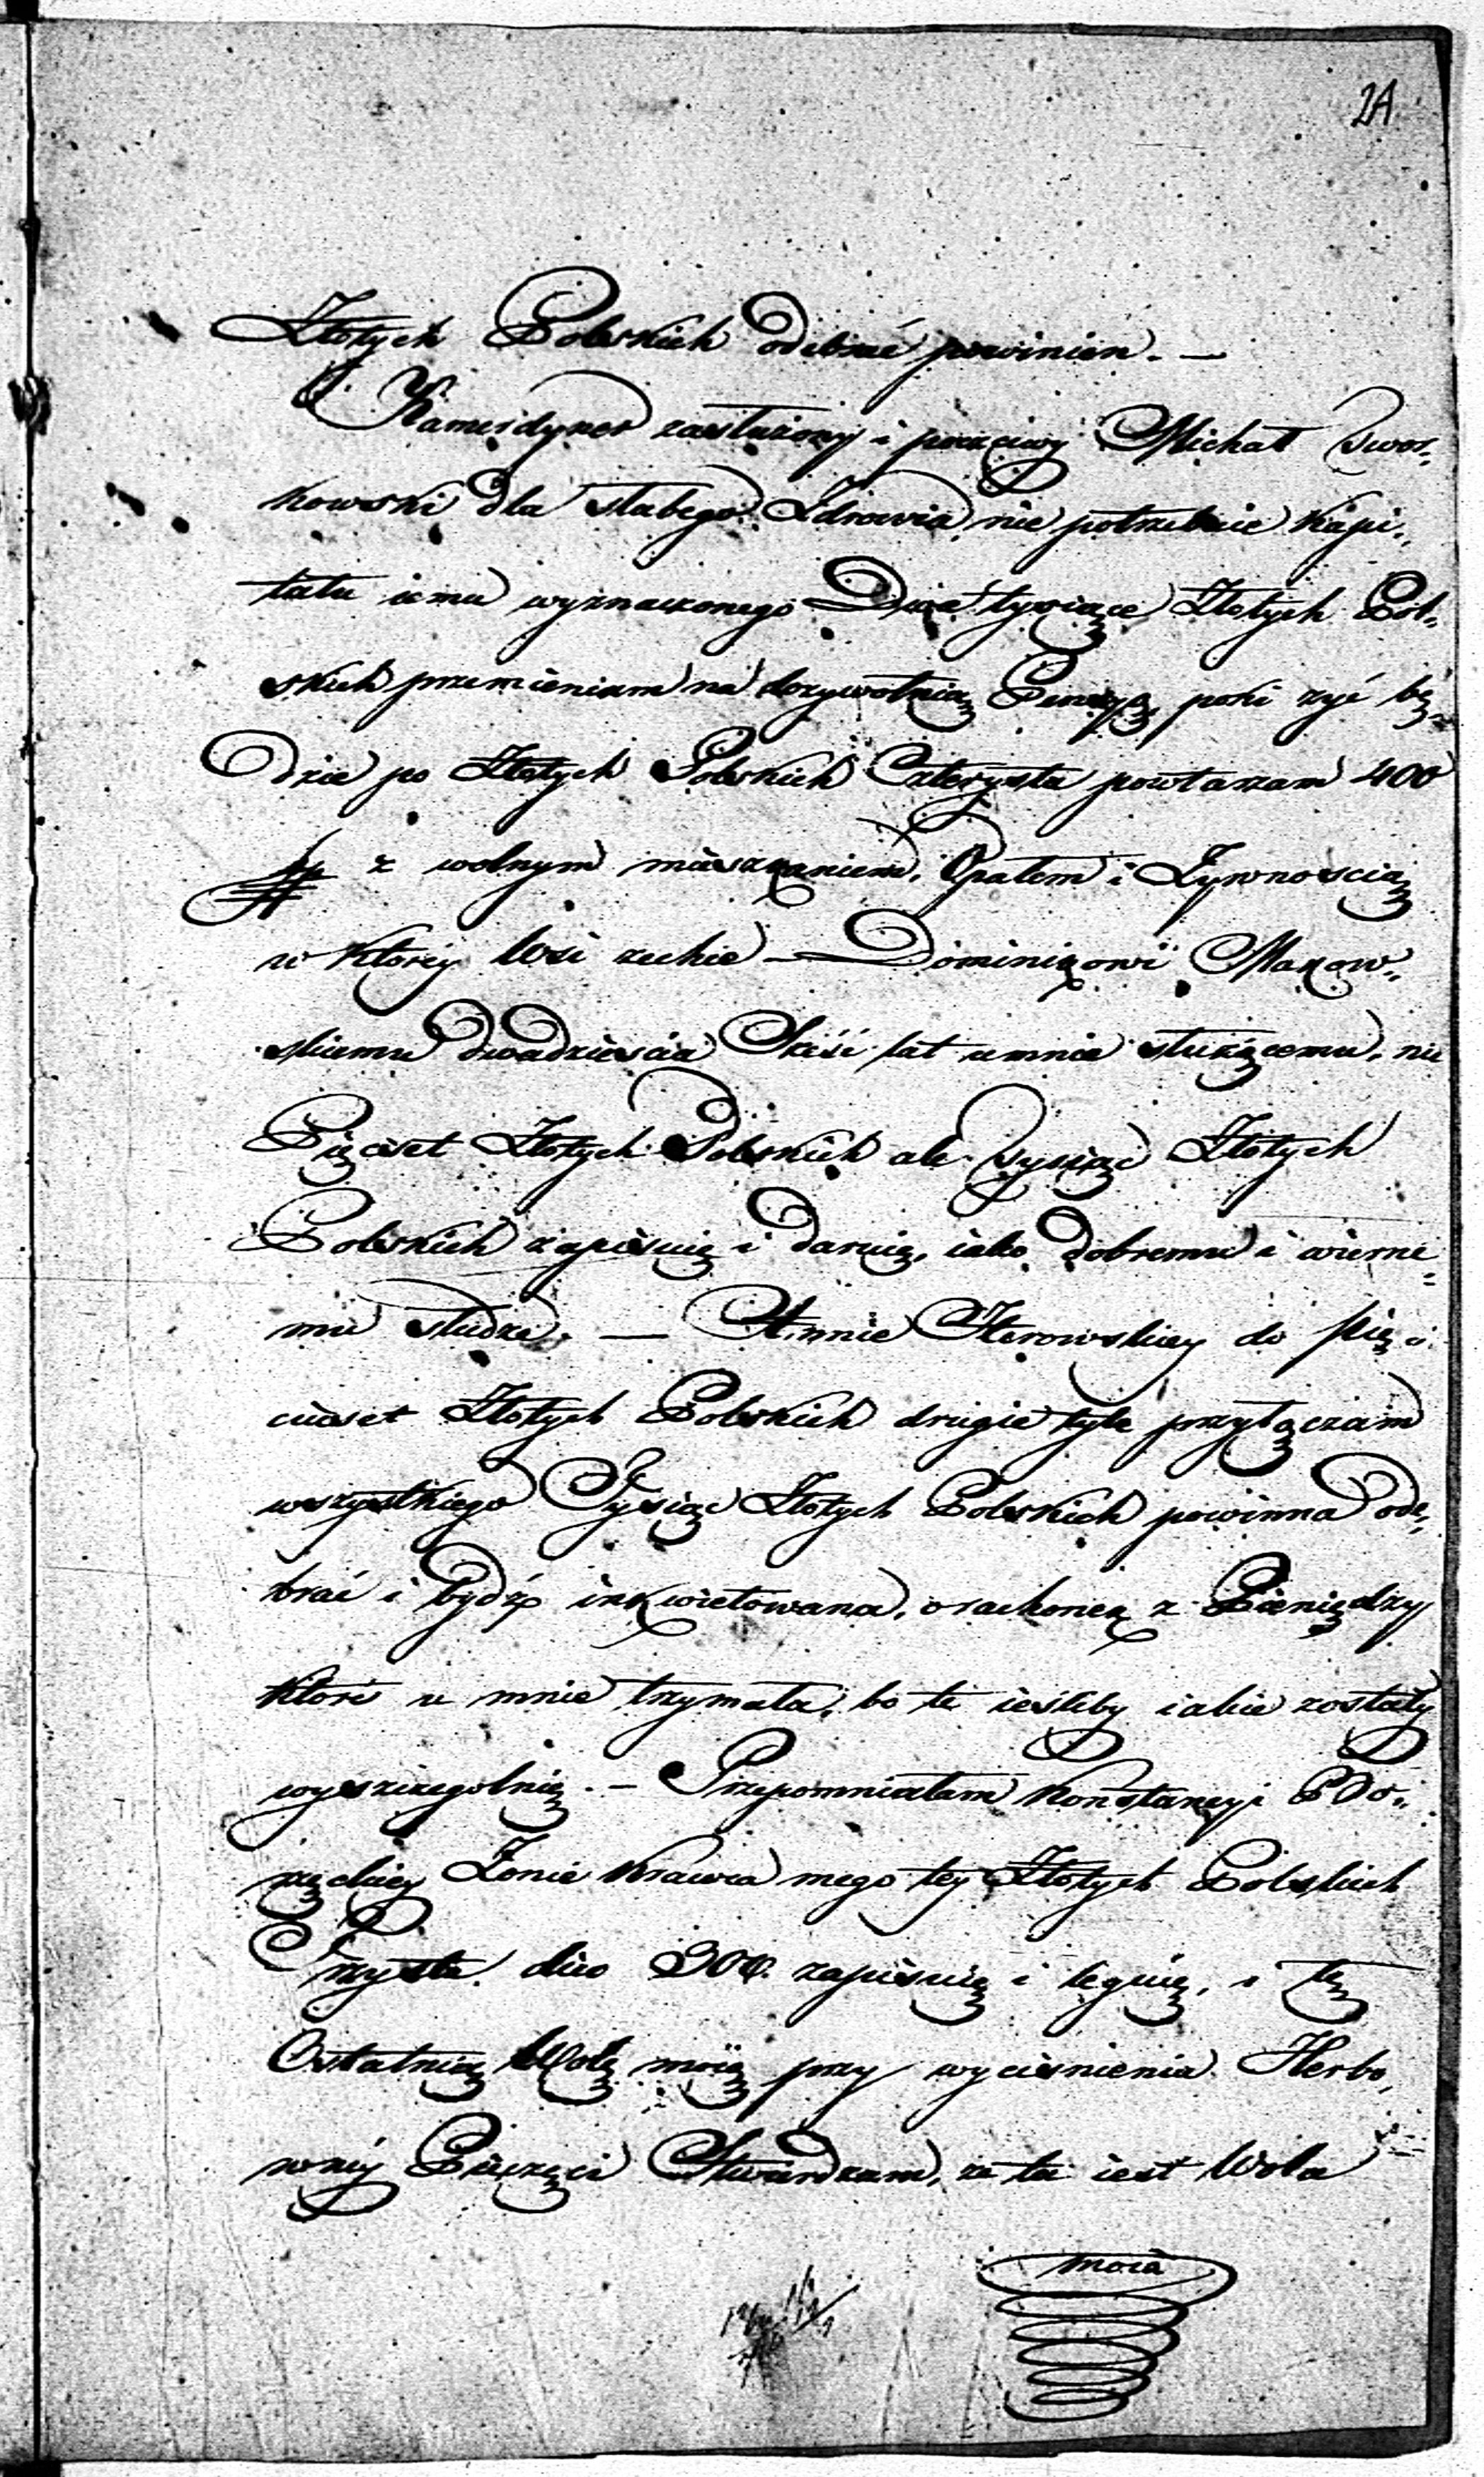 24
Złotych Polskich odebrać powinien. —
Kamerdyner zasłużony i poczciwy Michał Swor„
kowski dla słabego Zdrowia, nie potrzebuie kapi„
tału iemu wyznaczonego Dwa tysiące Złotych Pol„
skich przemieniam na dożywotnią Pensyą, poki żyć bę„
dzie po Złotych Polskich Czterysta powtarzam 400
z wolnym mieszkaniem, Opałem i Żywnoscią
w ktorey Wsi zechce — Dominikowi Makow„
skiemu dwadziescia Sześć lat u mnie służącemu, nie
Pięćset Złotych Polskich ale Tysiąc Złotych
Polskich zapisuię i daruię, iako dobremu i wierne„
mu słudze. — Annie Herowskiey do pię„
ciuset Złotych Polskich drugie tyle przyłączam
wszystkiego Tysiąc Złotych Polskich powinna ode„
brać i bydź inkwietowana, orachonek z Pieniędzy
ktore u mnie trzymała, bo te ieśliby iakie zostały
wyszczegolnię. — Przepomniałam Konstancyi
Żonie Krawca mego tey Złotych Polskich
Trzysta dico 300. zapisuię i leguię, i tę
Ostatnią Wolę moię przy wycisnieniu Herbo„
wney Pieczęci Stwierdzam, że ta iest Wola
moia